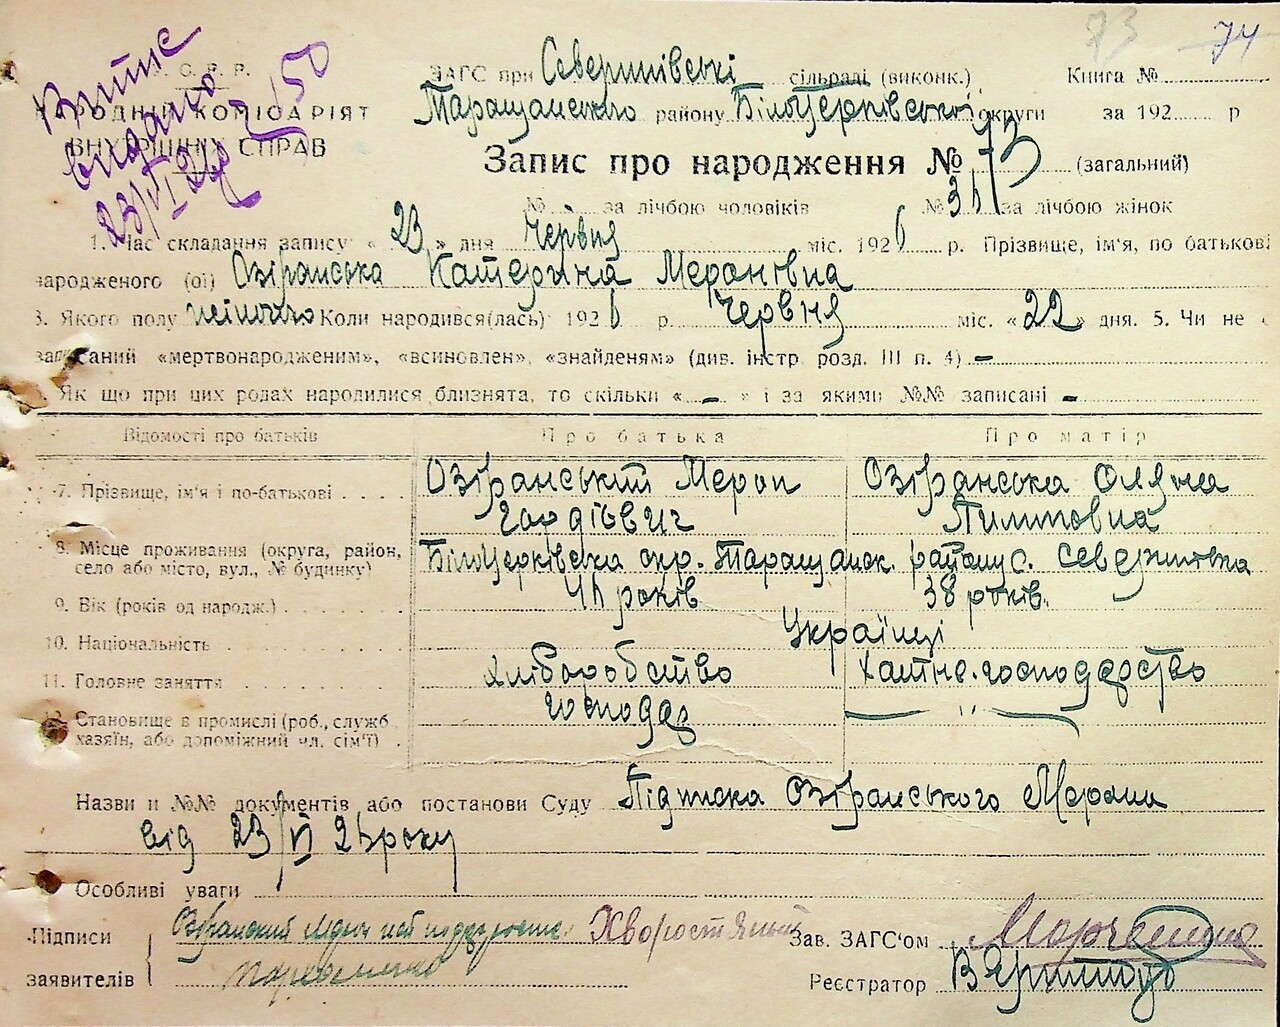 73 74
У. С. Р. Р.
НАРОДНИЙ КОМІСАРІЯТ
ВНУТРІШНІХ СПРАВ
Витяг
видано
23/VI 26р
150
ЗАГС при Северинівські сільраді (виконк.) Книга №
Таращанського району Білоцерківської округи за 192 р
Запис про народження № 73 (загальний)
№ за лічбою чоловіків № 36 за лічбою жінок
1. Час складання запису: « 23 » дня Червня міс. 1926 р. Прізвище, ім'я, по батькові
народженого (ої) Озіранська Катерина Меронівна
3. Якого полу жіночого Коли народився(лась) 1926 р. Червня міс. « 22 » дня. 5. Чи не є
записаний «мертвонародженим», «всиновлен», «знайденям» (див. інстр розд. III п. 4) -
Як що при цих родах народилися близнята, то скільки « - » і за якими №№ записані -
Відомості про батьків Про батька Про матір
7. Прізвище, ім'я і по-батькові Озіранський Мерон Озіранська Оляна
Гордієвич Пилиповна
8. Місце проживання (округа, район, Білоцерківська окр. Таращанск. району с. Северинівка
село або місто, вул., № будинку)
9. Вік (років од народж.) 46 років 38 років.
10. Національність Українці
11. Головне заняття хліборобство хатне-господарство
12. Становище в промислі (роб., служб господар — " —
хазяїн, або допоміжний чл. сім'ї)
Назви и №№ документів або постанови Суду Підписка Озіранського Мерона
від 23/VI 26 року
Особливі уваги
Підписи Озіранский Мерон Хворостяний Зав. ЗАГС'ом
заявителів Пархоменко Реєстратор